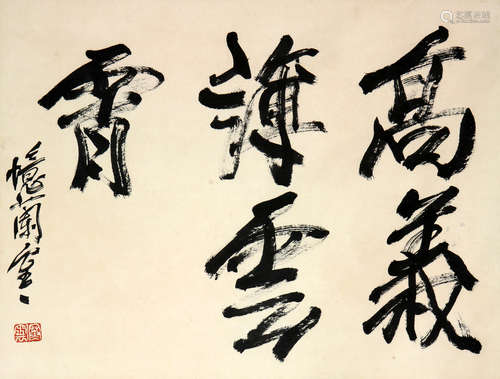 高義
薄雲
霄
憶蘭室